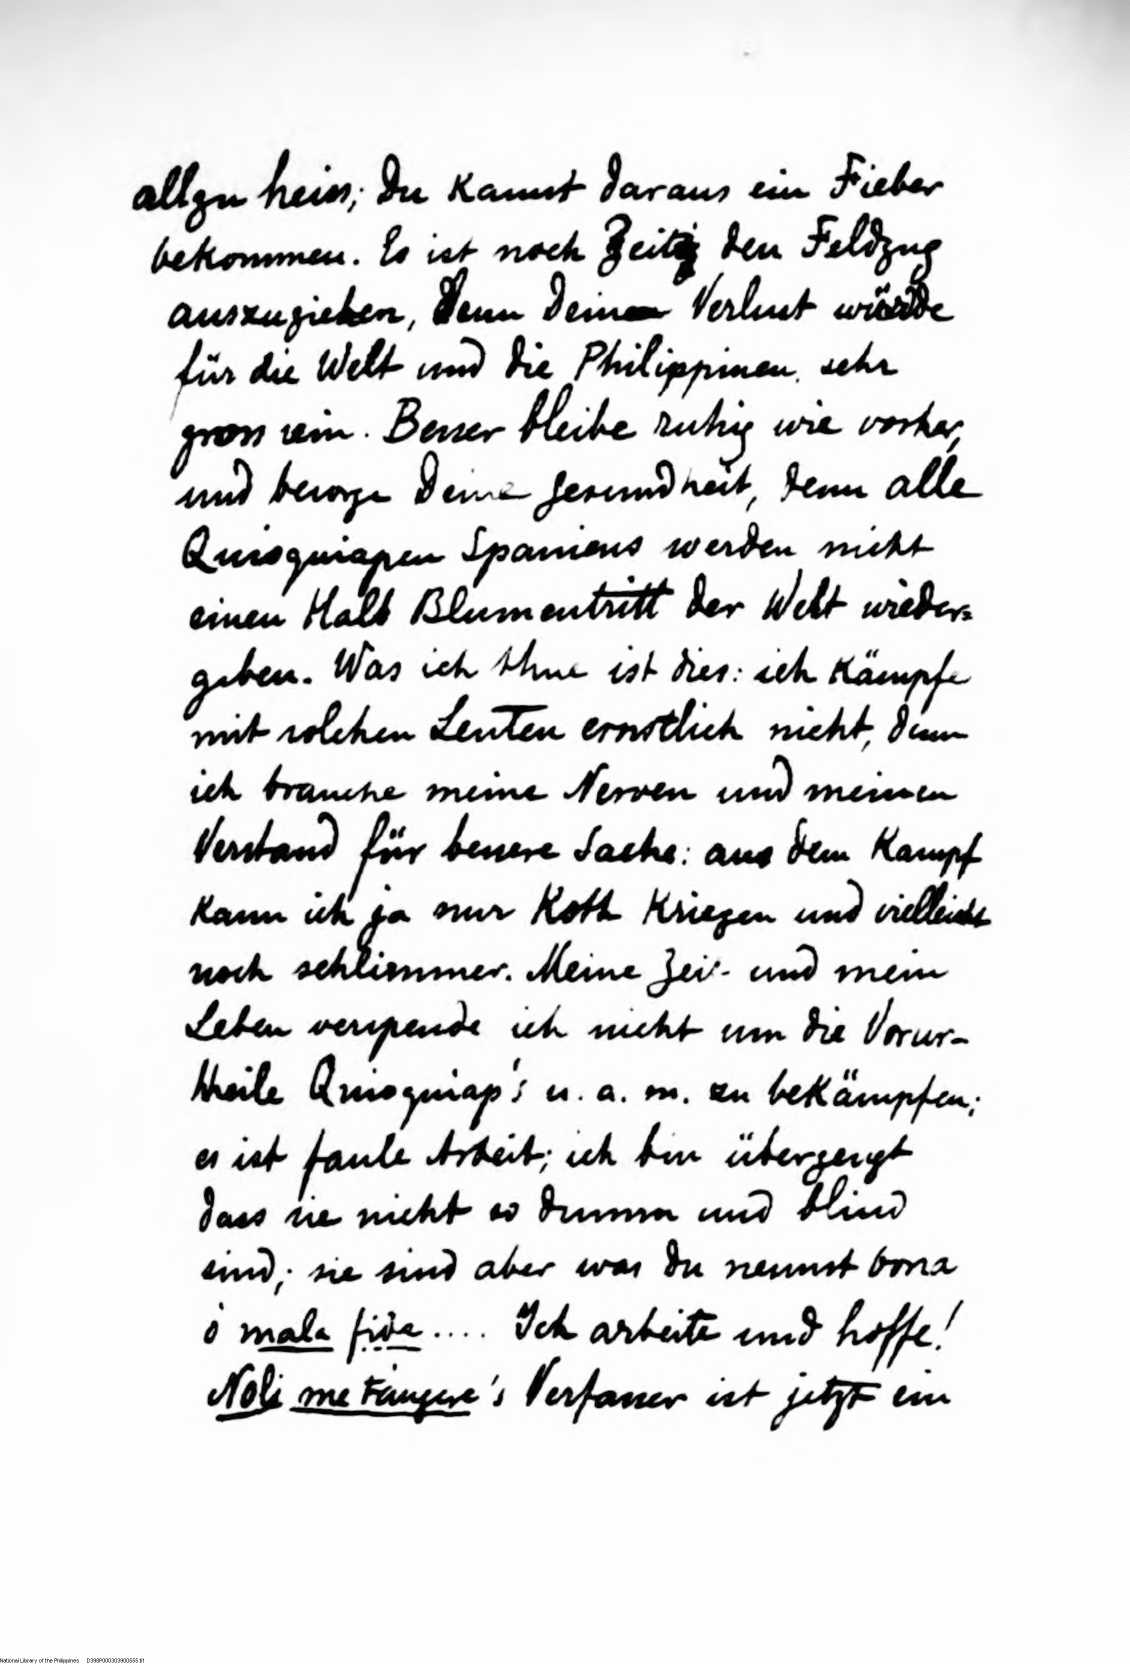 allzu heiss; Du kannst daraus ein Fieber
bekommen. Es ist noch Zeitig den Feldzug
auszuziehen, denn Deinen Verlust würde
für die Welt und die Philippinen sehr
gross sein. Besser bleibe ruhig wie vorher,
und besorge Deine Gesundheit, denn alle
Quioquiapen Spaniens werden nicht
einen Halb Blumentritt der Welt wieder=
geben. Was ich thue ist dies: ich kämpfe
mit solchen Leuten ernstlich nicht, denn
ich brauche meine Nerven und meinen
Verstand für bessere Sache: aus dem Kampf
kann ich ja nur Koth kriegen und vielleicht
noch schlimmer. Meine Zeit und mein
Leben verspende ich nicht um die Vorur-
theile Quioquiap's u. a. m. zu bekämpfen;
es ist faule Arbeit; ich bin überzeugt
dass sie nicht so dumm und blind
sind; sie sind aber was Du nennst bona
ó mala fide .... Ich arbeite und hoffe!
Noli me tángere's Verfasser ist jetzt ein
National Library of the Philippines